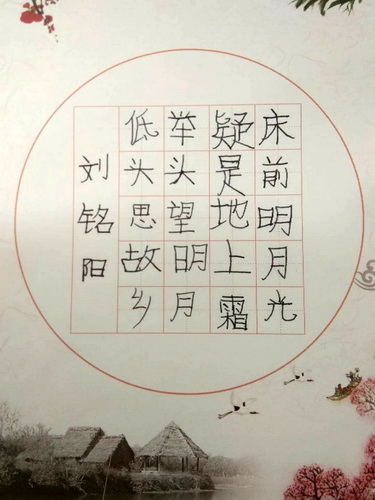 床前明月光
疑是地上霜
举头望明月
低头思故乡
刘铭阳